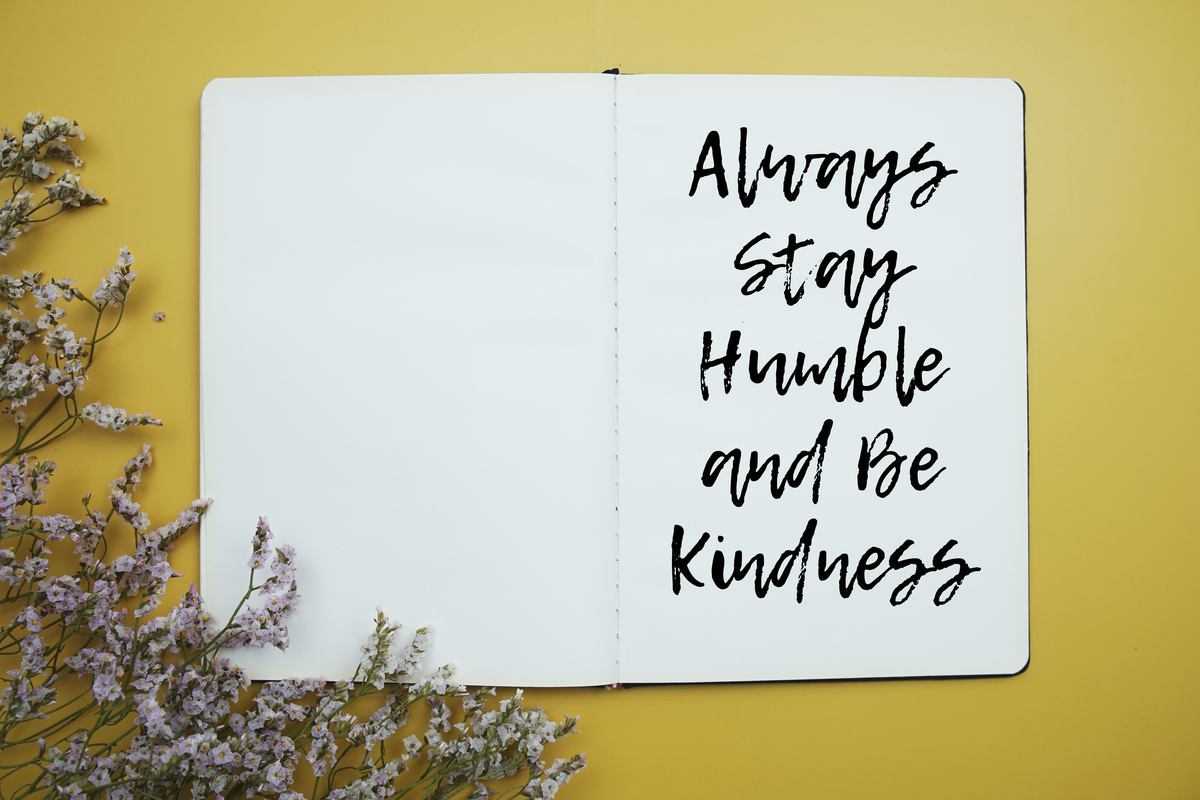 Always
Stay
Humble
and Be
Kindness